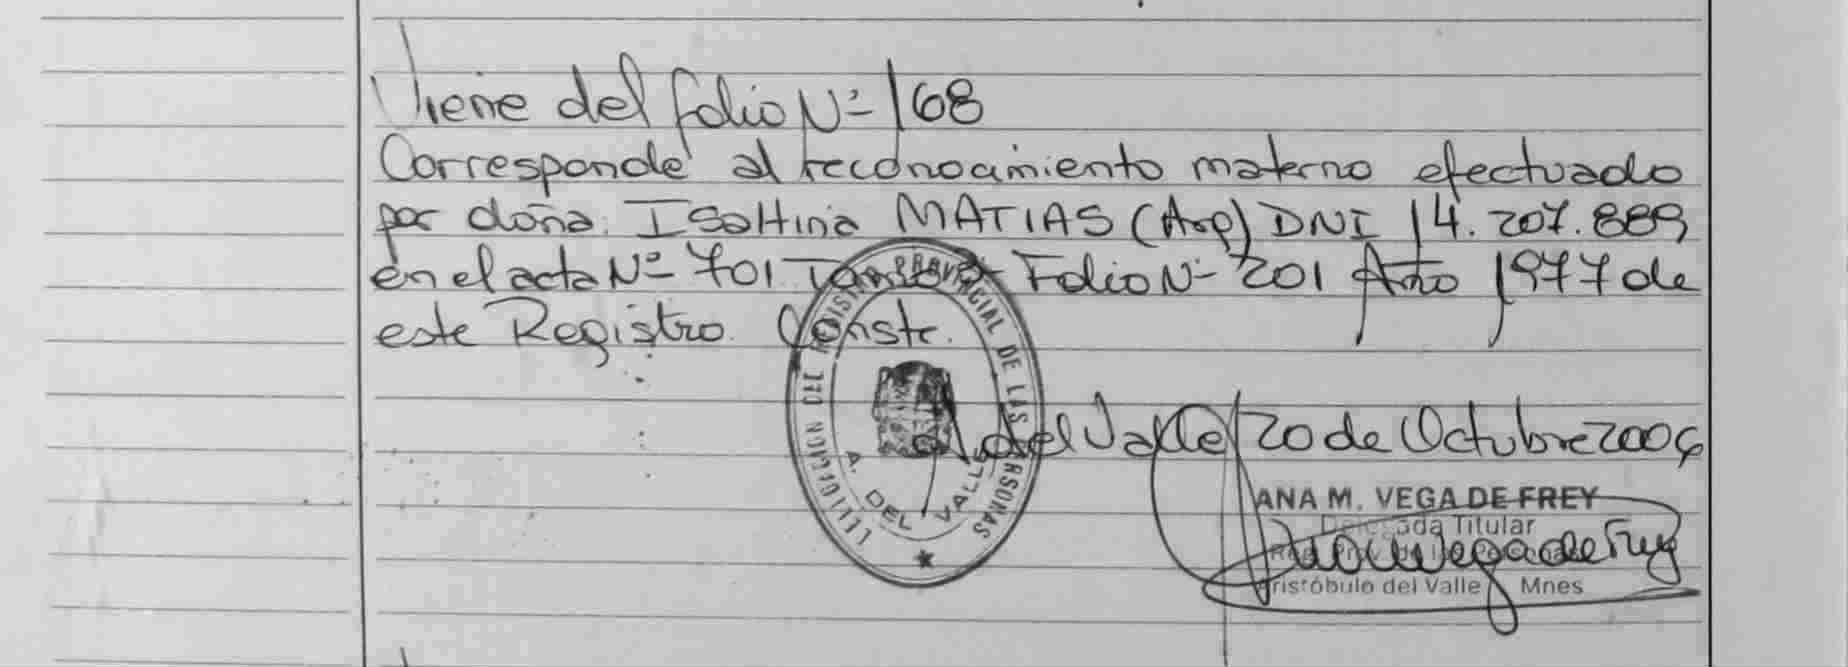 Viene del folio Nº 168
Corresponde al reconocimiento materno efectuado
por doña: Isaltina MATIAS (Arg) DNI 14.207.889
en el acta Nº 701 Tomo Folio Nº 201 Año 1977 de
este Registro. Conste.
A. del Valle 20 de Octubre 2006
DEL REGISTRO PROVINCIAL DE LAS PERSONAS
A. DEL VALLE
ANA M. VEGA DE FREY
Delegada Titular
Cristóbulo del Valle Mnes